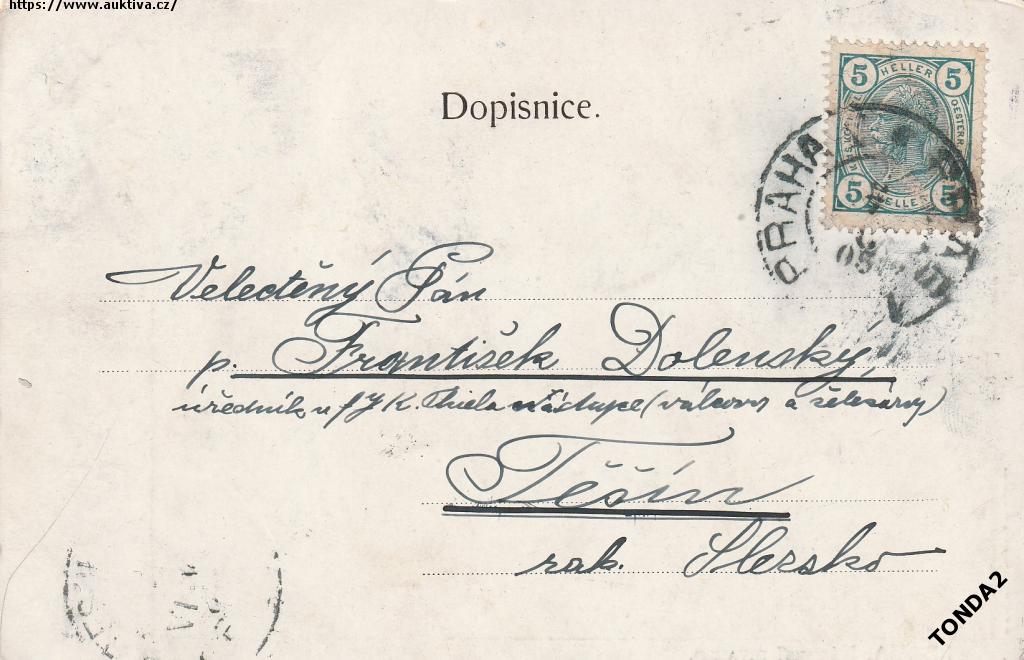 https://www.auktiva.cz/
Dopisnice.
5 HELLER 5
5 HELLER 5
PRAHA
Velectěný Pán
p. František Dolenský,
úředník u fy K. Thiela nástupce (válcovny a
Těšín
rak. Slezsko
TONDA2